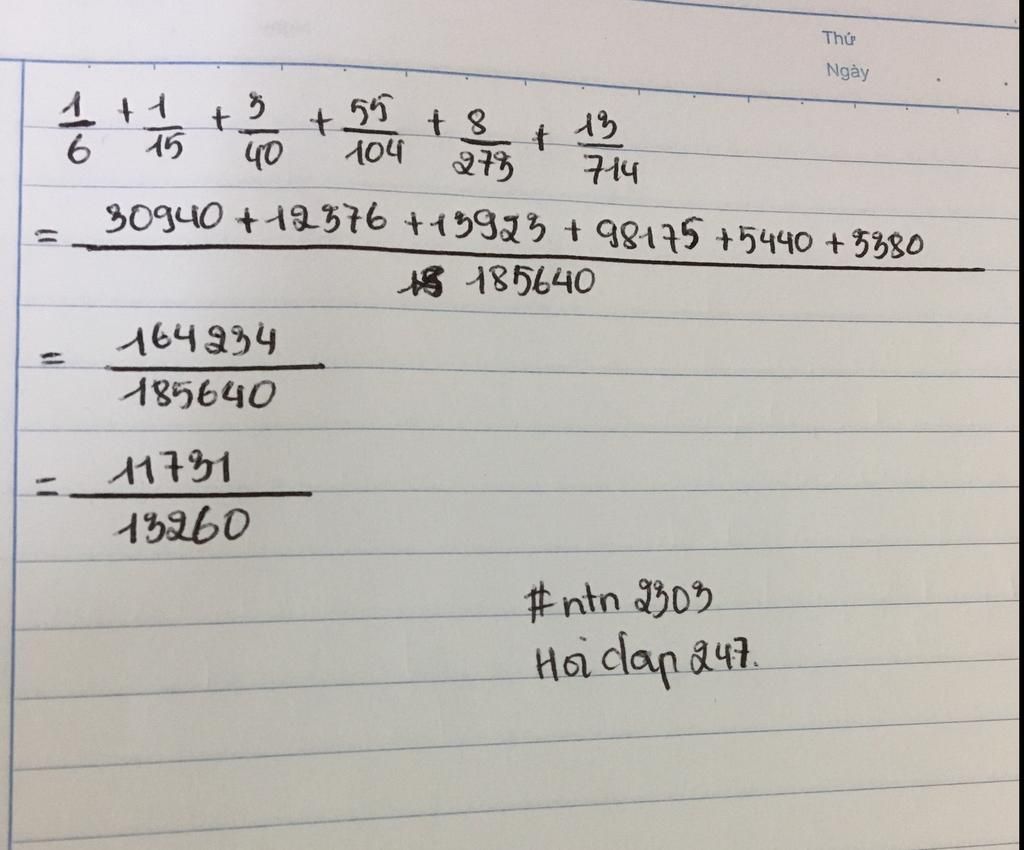 Thứ
Ngày
1/6 + 1/15 + 3/40 + 55/104 + 8/273 + 13/714
= (30940 + 12376 + 13923 + 98175 + 5440 + 3380)/185640
= 164234/185640
= 11731/13260
#ntn 2303
Hoi dap 247.